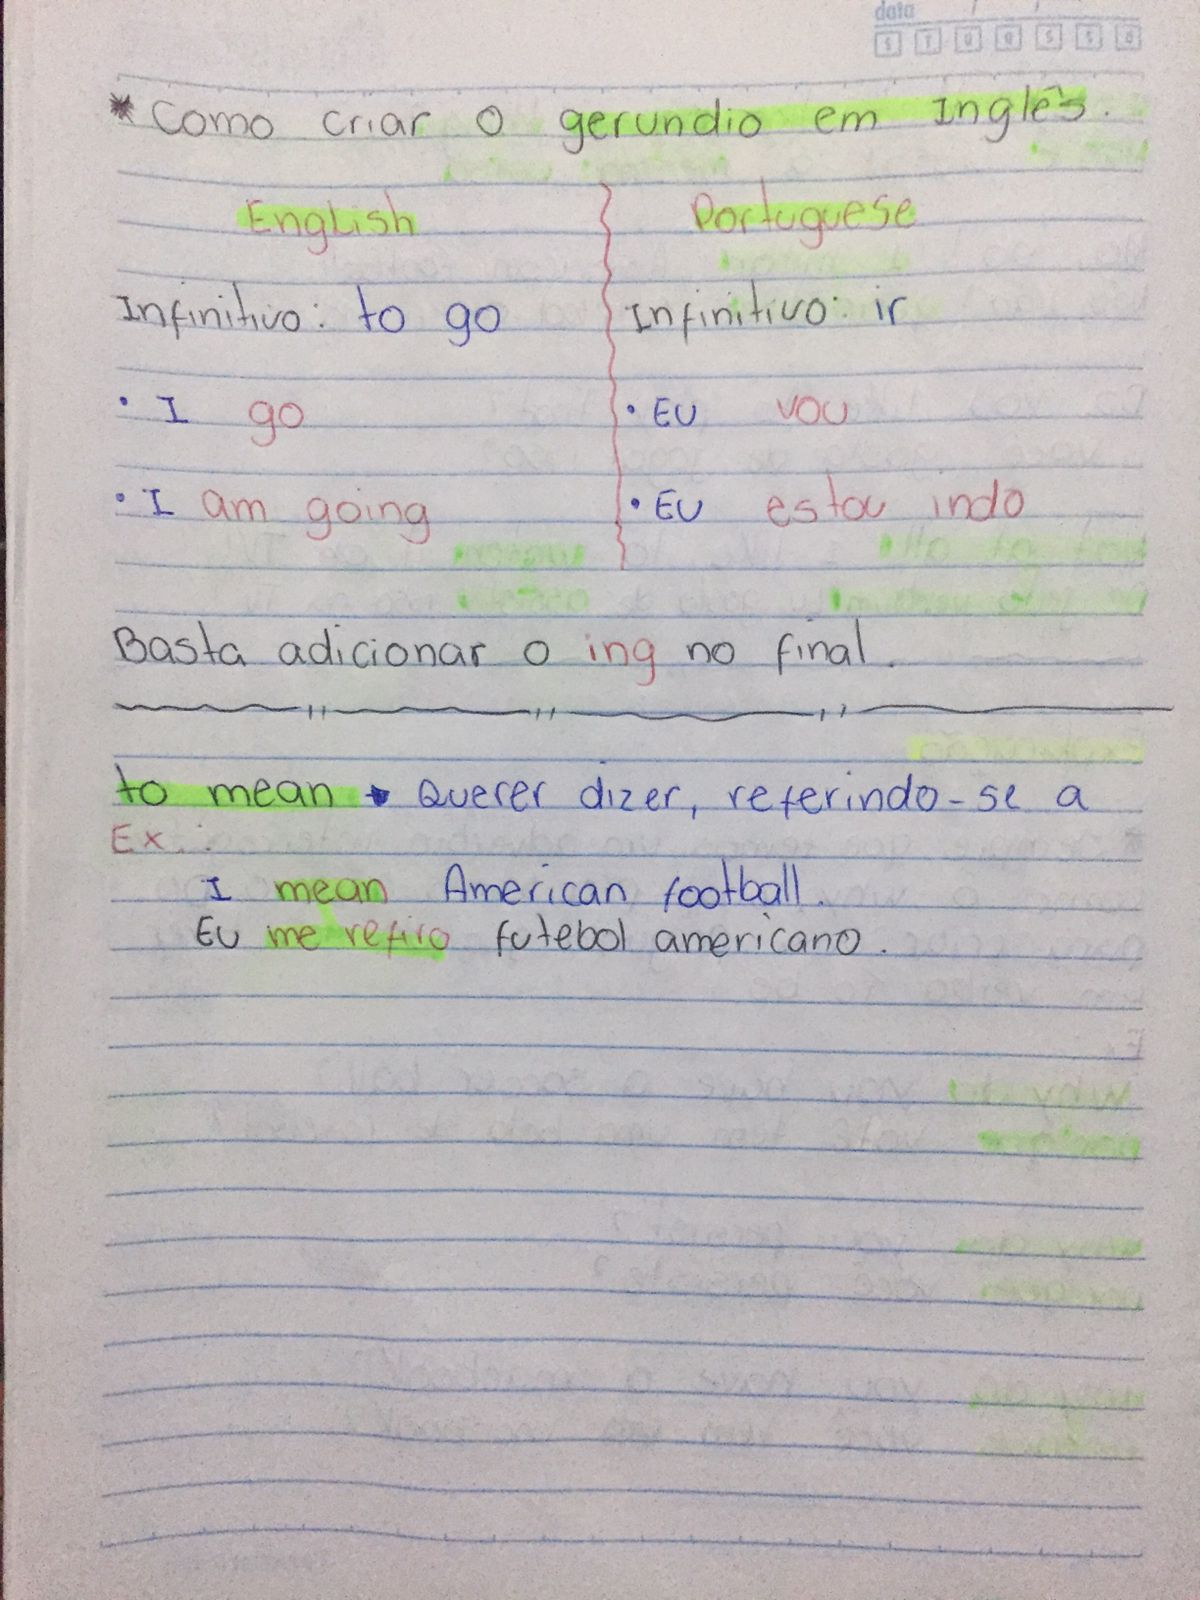 data / /
S T Q Q S S D
* Como criar o gerundio em Inglês.
English Portuguese
Infinitivo: to go Infinitivo: ir
• I go • Eu vou
• I am going • Eu estou indo
Basta adicionar o ing no final.
to mean → Querer dizer, referindo-se a
Ex.:
I mean American football.
Eu me refiro futebol americano.